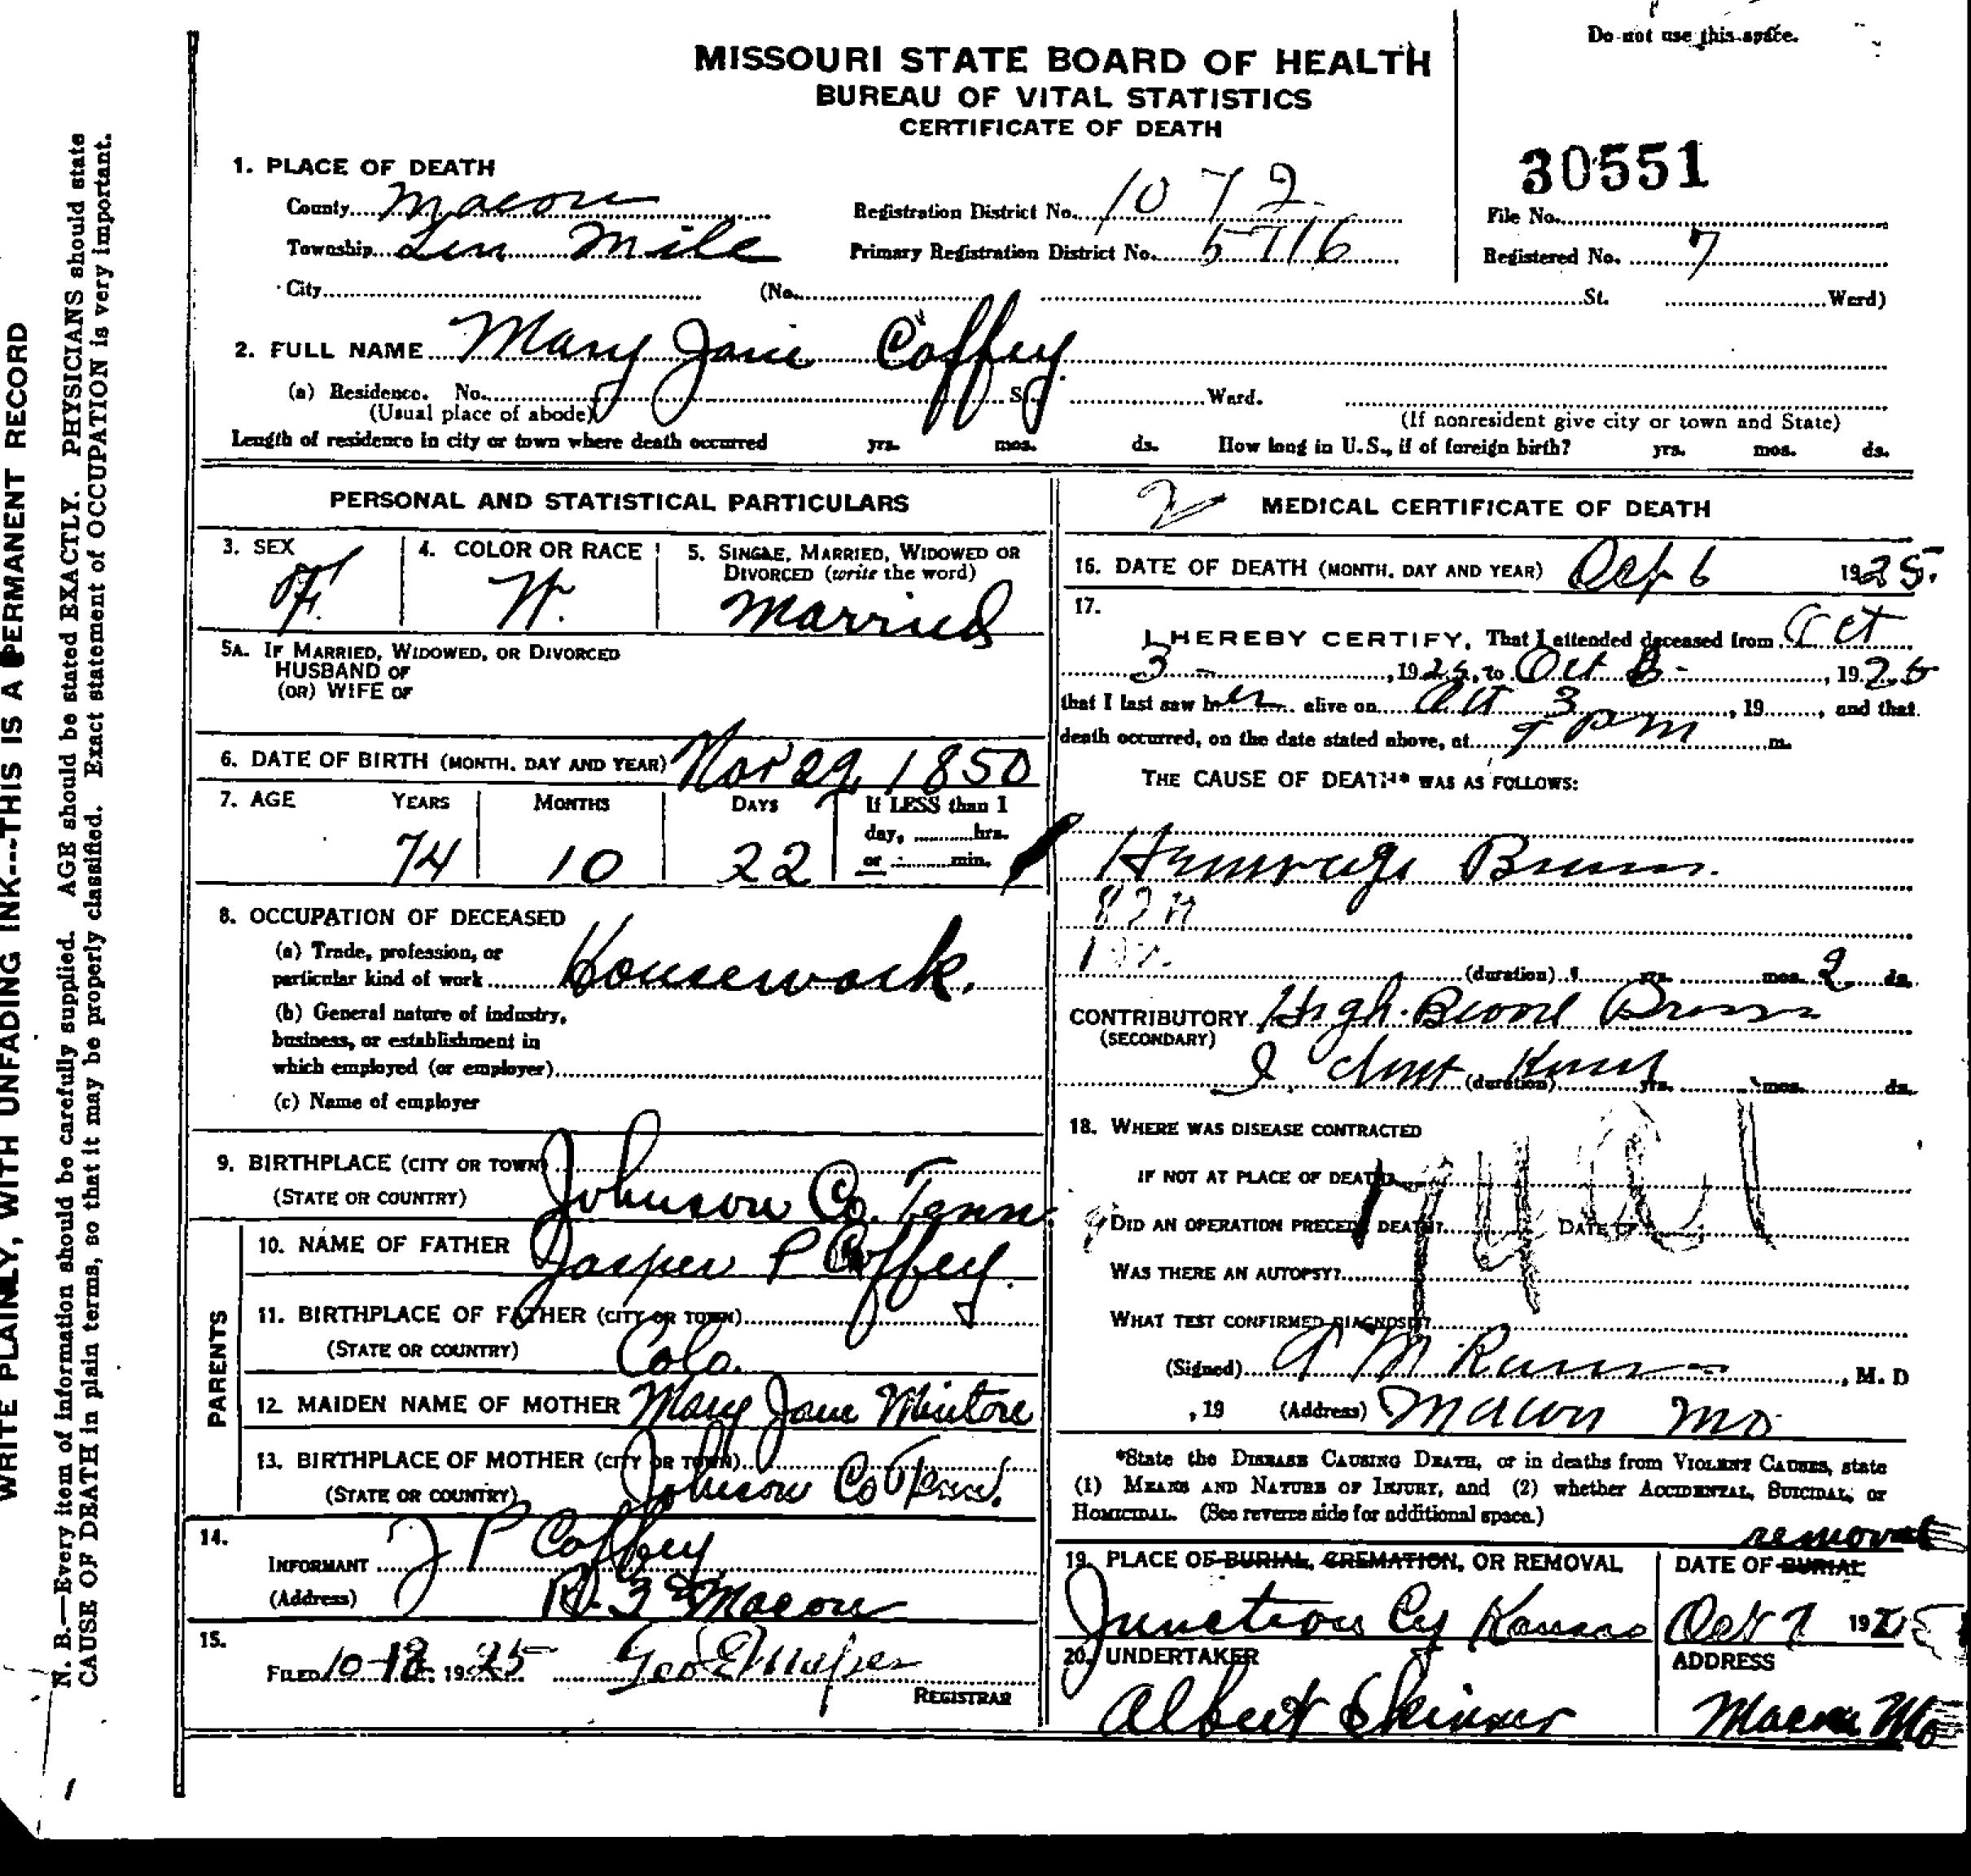 Do not use this space.
MISSOURI STATE BOARD OF HEALTH
BUREAU OF VITAL STATISTICS
CERTIFICATE OF DEATH
30551
1. PLACE OF DEATH
County Macon Registration District No. 1072 File No.
Township Ten Mile Primary Registration District No. 5716 Registered No. 7
City (No. St. Ward)
2. FULL NAME Mary Jane Coffey
(a) Residence. No. St. Ward.
(Usual place of abode) (If nonresident give city or town and State)
Length of residence in city or town where death occurred yrs. mos. ds. How long in U.S., if of foreign birth? yrs. mos. ds.
PERSONAL AND STATISTICAL PARTICULARS
3. SEX 4. COLOR OR RACE 5. SINGLE, MARRIED, WIDOWED OR
DIVORCED (write the word)
F. W. Married
5A. IF MARRIED, WIDOWED, OR DIVORCED
HUSBAND OF
(OR) WIFE OF
6. DATE OF BIRTH (MONTH, DAY AND YEAR) Nov 29, 1850
7. AGE YEARS MONTHS DAYS If LESS than 1
day, hrs.
or min.
74 10 22
8. OCCUPATION OF DECEASED
(a) Trade, profession, or
particular kind of work Housework.
(b) General nature of industry,
business, or establishment in
which employed (or employer)
(c) Name of employer
9. BIRTHPLACE (CITY OR TOWN)
(STATE OR COUNTRY) Johnson Co. Tenn
PARENTS
10. NAME OF FATHER Jasper P Coffey.
11. BIRTHPLACE OF FATHER (CITY OR TOWN)
(STATE OR COUNTRY) Colo.
12. MAIDEN NAME OF MOTHER Mary Jane
13. BIRTHPLACE OF MOTHER (CITY OR TOWN)
(STATE OR COUNTRY) Johnson Co Tenn.
14.
INFORMANT J P Coffey
(Address) R. 3 Macon
15.
FILED 10-18 1925 Geo E
REGISTRAR
2 MEDICAL CERTIFICATE OF DEATH
16. DATE OF DEATH (MONTH, DAY AND YEAR) Oct 6 1925.
17.
I HEREBY CERTIFY, That I attended deceased from Oct
3 , 1925, to Oct 6 , 1925
that I last saw her alive on Oct 3 , 19 , and that
death occurred, on the date stated above, at 9 pm m.
THE CAUSE OF DEATH* WAS AS FOLLOWS:
(duration) yrs. mos. 2 ds.
CONTRIBUTORY High Blood
(SECONDARY)
(duration) yrs. mos. ds.
18. WHERE WAS DISEASE CONTRACTED
IF NOT AT PLACE OF DEATH?
DID AN OPERATION PRECEDE DEATH? DATE OF
WAS THERE AN AUTOPSY?
WHAT TEST CONFIRMED DIAGNOSIS?
(Signed) A M , M. D
, 19 (Address) Macon Mo
*State the DISEASE CAUSING DEATH, or in deaths from VIOLENT CAUSES, state
(1) MEANS AND NATURE OF INJURY, and (2) whether ACCIDENTAL, SUICIDAL, or
HOMICIDAL. (See reverse side for additional space.)
removal
19. PLACE OF BURIAL, CREMATION, OR REMOVAL DATE OF BURIAL
Junction Cy Kansas Oct 7 1925
20. UNDERTAKER ADDRESS
Albert Skinner Macon Mo
WRITE PLAINLY, WITH UNFADING INK---THIS IS A PERMANENT RECORD
N. B.—Every item of information should be carefully supplied. AGE should be stated EXACTLY. PHYSICIANS should state
CAUSE OF DEATH in plain terms, so that it may be properly classified. Exact statement of OCCUPATION is very important.